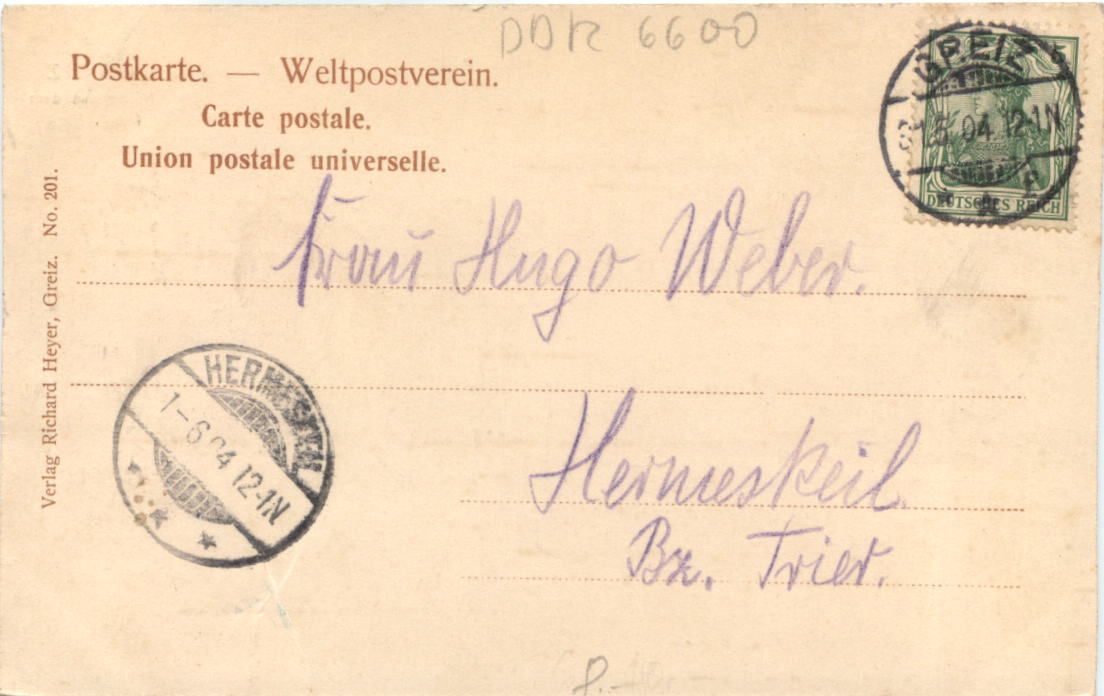 DDR 6600
Postkarte. — Weltpostverein.
Carte postale.
Union postale universelle.
GREIZ
5.04.12-1N
5
DEUTSCHES REICH
Frau Hugo Weber.
Verlag Richard Heyer, Greiz. No. 201.
HERMESKEIL
1-6 04 12-1N
Hermeskeil
Bz. Trier.